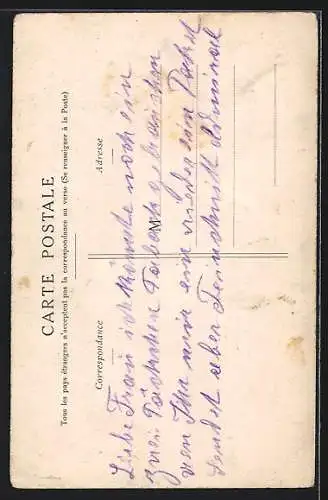 CARTE POSTALE
Tous les pays étrangers n'acceptent pas la correspondance au verso (Se renseigner à la Poste)
Correspondance
Adresse
M
Liebe Frau ich könnte noch ein
zwei Päckchen Tabak gebrauchen
wen Ihr mir eine wieder ein Packet
sendet aber Feinschnitt